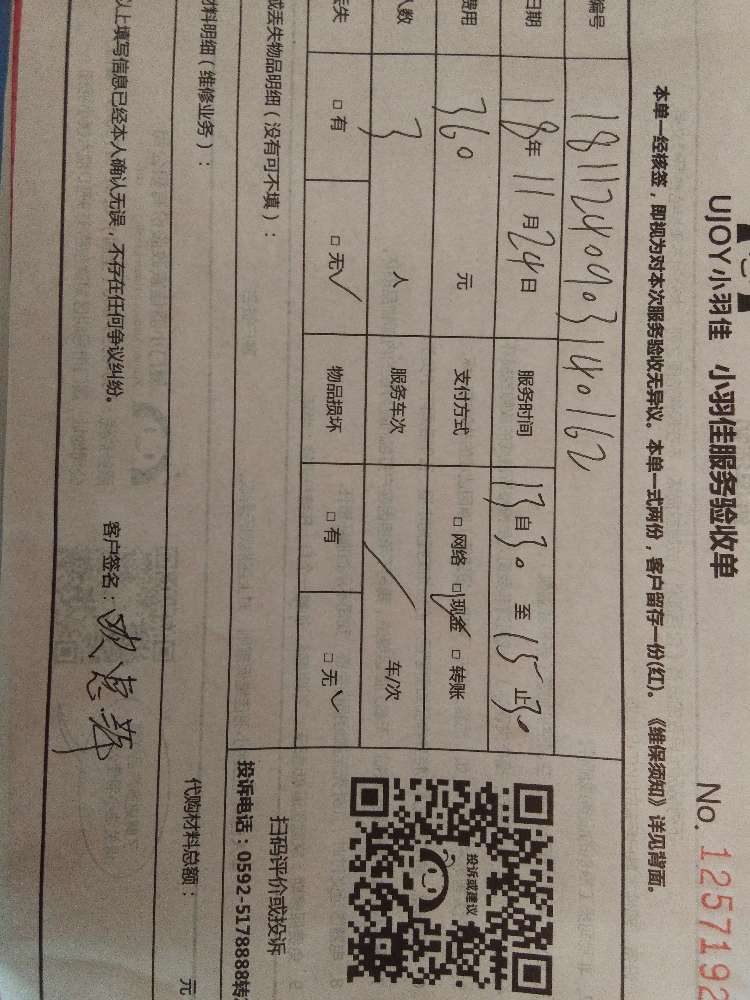 UJOY小羽佳 小羽佳服务验收单
No. 1257192
本单一经核签，即视为对本次服务验收无异议。本单一式两份，客户留存一份(红)。《维保须知》详见背面。
编号 1811240903140162
日期 18年11月24日 服务时间 13自30至15止30
费用 360元 支付方式 □网络 □现金 □转账
人数 3人 服务车次 车/次
丢失 □有 □无 物品损坏 □有 □无
投诉或建议
扫码评价或投诉
投诉电话：0592-5178888转
或丢失物品明细（没有可不填）：
材料明细（维修业务）： 代购材料总额： 元
以上填写信息已经本人确认无误，不存在任何争议纠纷。 客户签名：